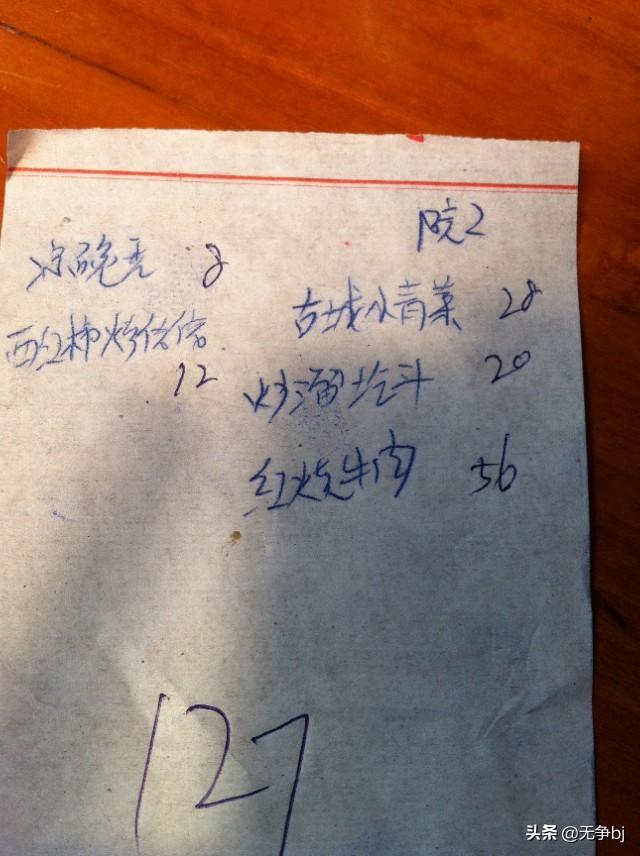 院2
凉碗豆 8
古城水青菜 28
西红柿烤饹饹
12
炒溜圪斗 20
红烧牛肉 56
127
头条 @无争bj